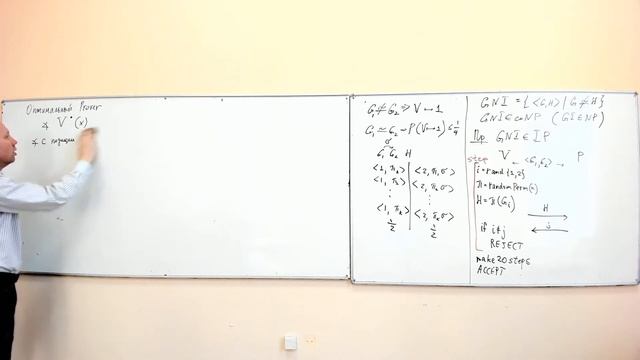 Оптимальный Prover
∢ V*(x)
∢ с позиции
G₁ ≄ G₂ ⇒ V → 1
G₁ ≃ G₂ → P(V→1) ≤ 1/4
σ
G₁ G₂ H
<2, π₂> <2, π₂σ>
<1, π₁> <2, π₁σ>
⋮ ⋮
<1, π₁> <2, π₁σ>
1/2 1/2
GNI = {<G,H> | G ≄ H}
GNI ∈ coNP (GI ∈ NP)
Пр. GNI ∈ IP
step V ← <G₁G₂> → P
i = rand {1,2}
π = randomPerm(n)
H = π(Gᵢ)
H
j
if i≠j
REJECT
make 20 steps
ACCEPT